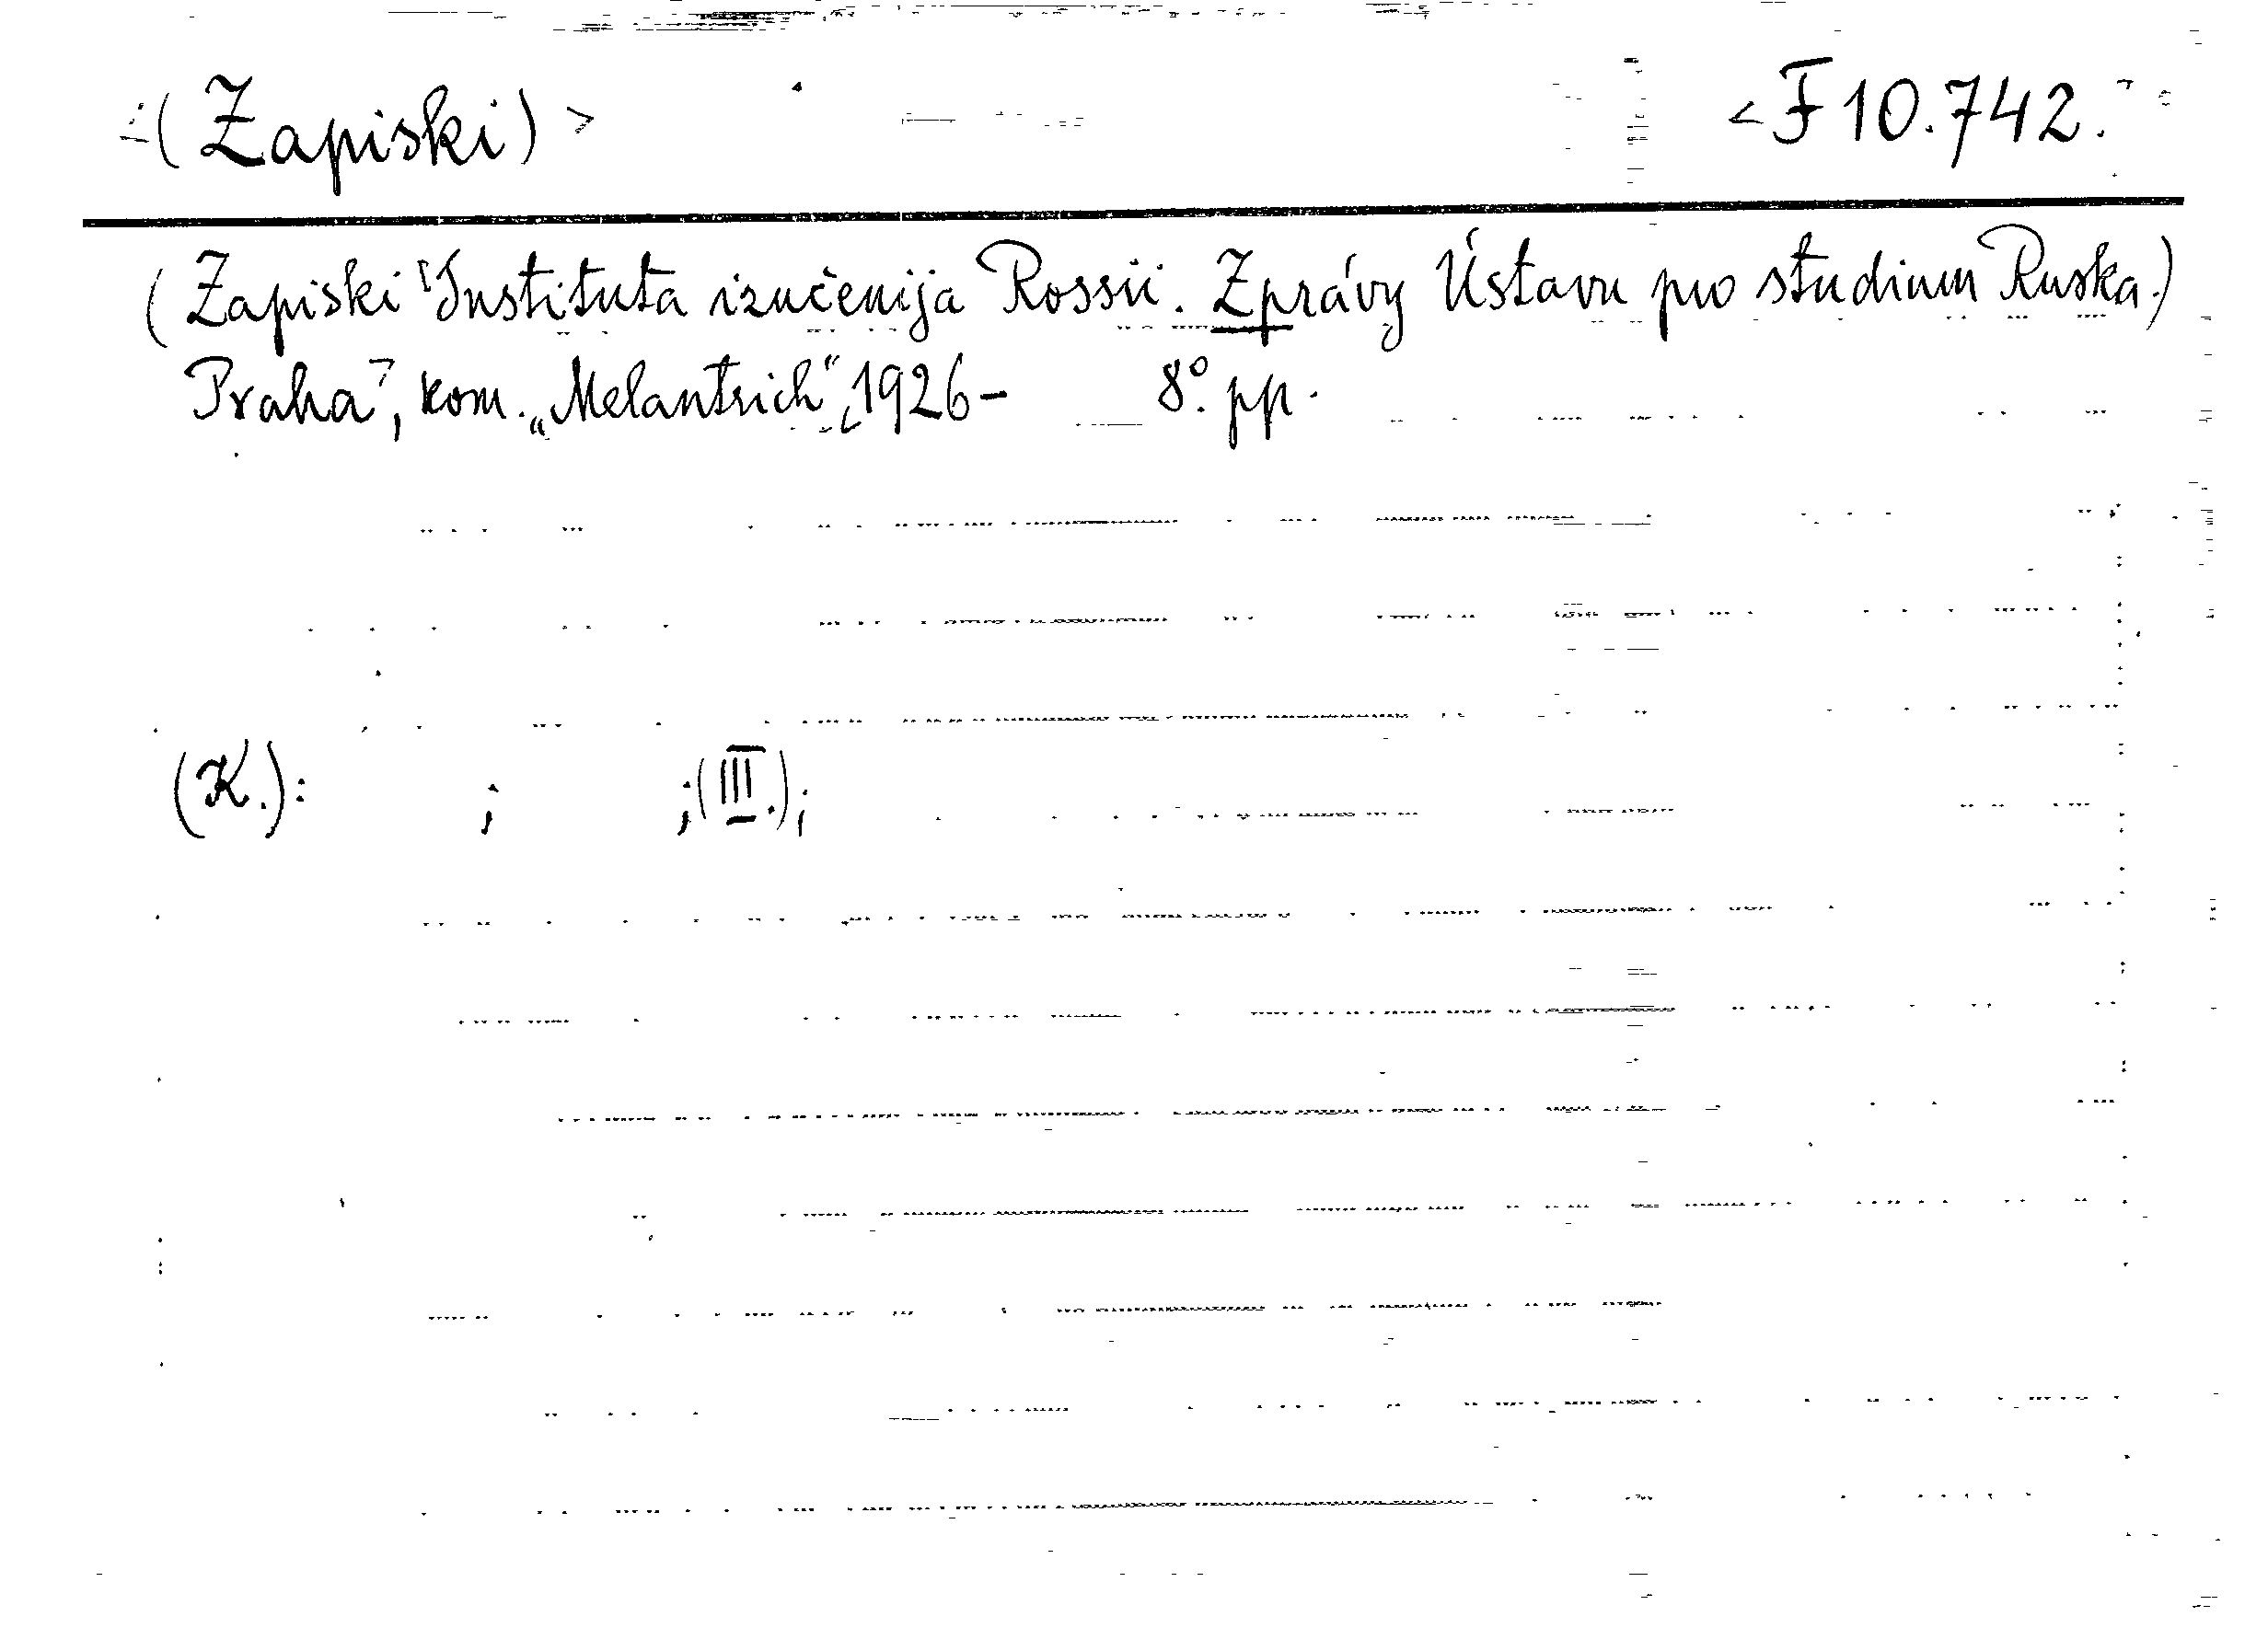 <(Zapiski)> <F 10.742.>
(Zapiski Instituta izučenija Rossii. Zprávy Ústavu pro studium Ruska.)
Praha, kom. „Melantrich“, 1926- 8°. pp.
(K.): ; ;(III.);